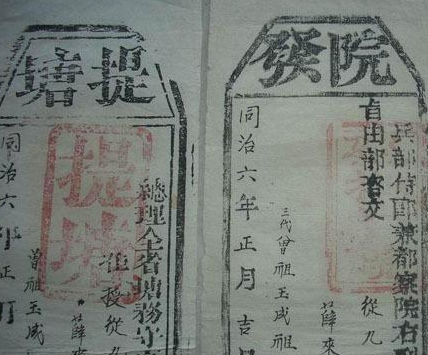 院發
兵部侍郎兼都察院右
從九
薛來
自由部咨文
三代曾祖玉成祖
同治六年正月吉
提塘
總理全省塘務守
從九
薛來
提塘
曾祖玉成
同治六年正月